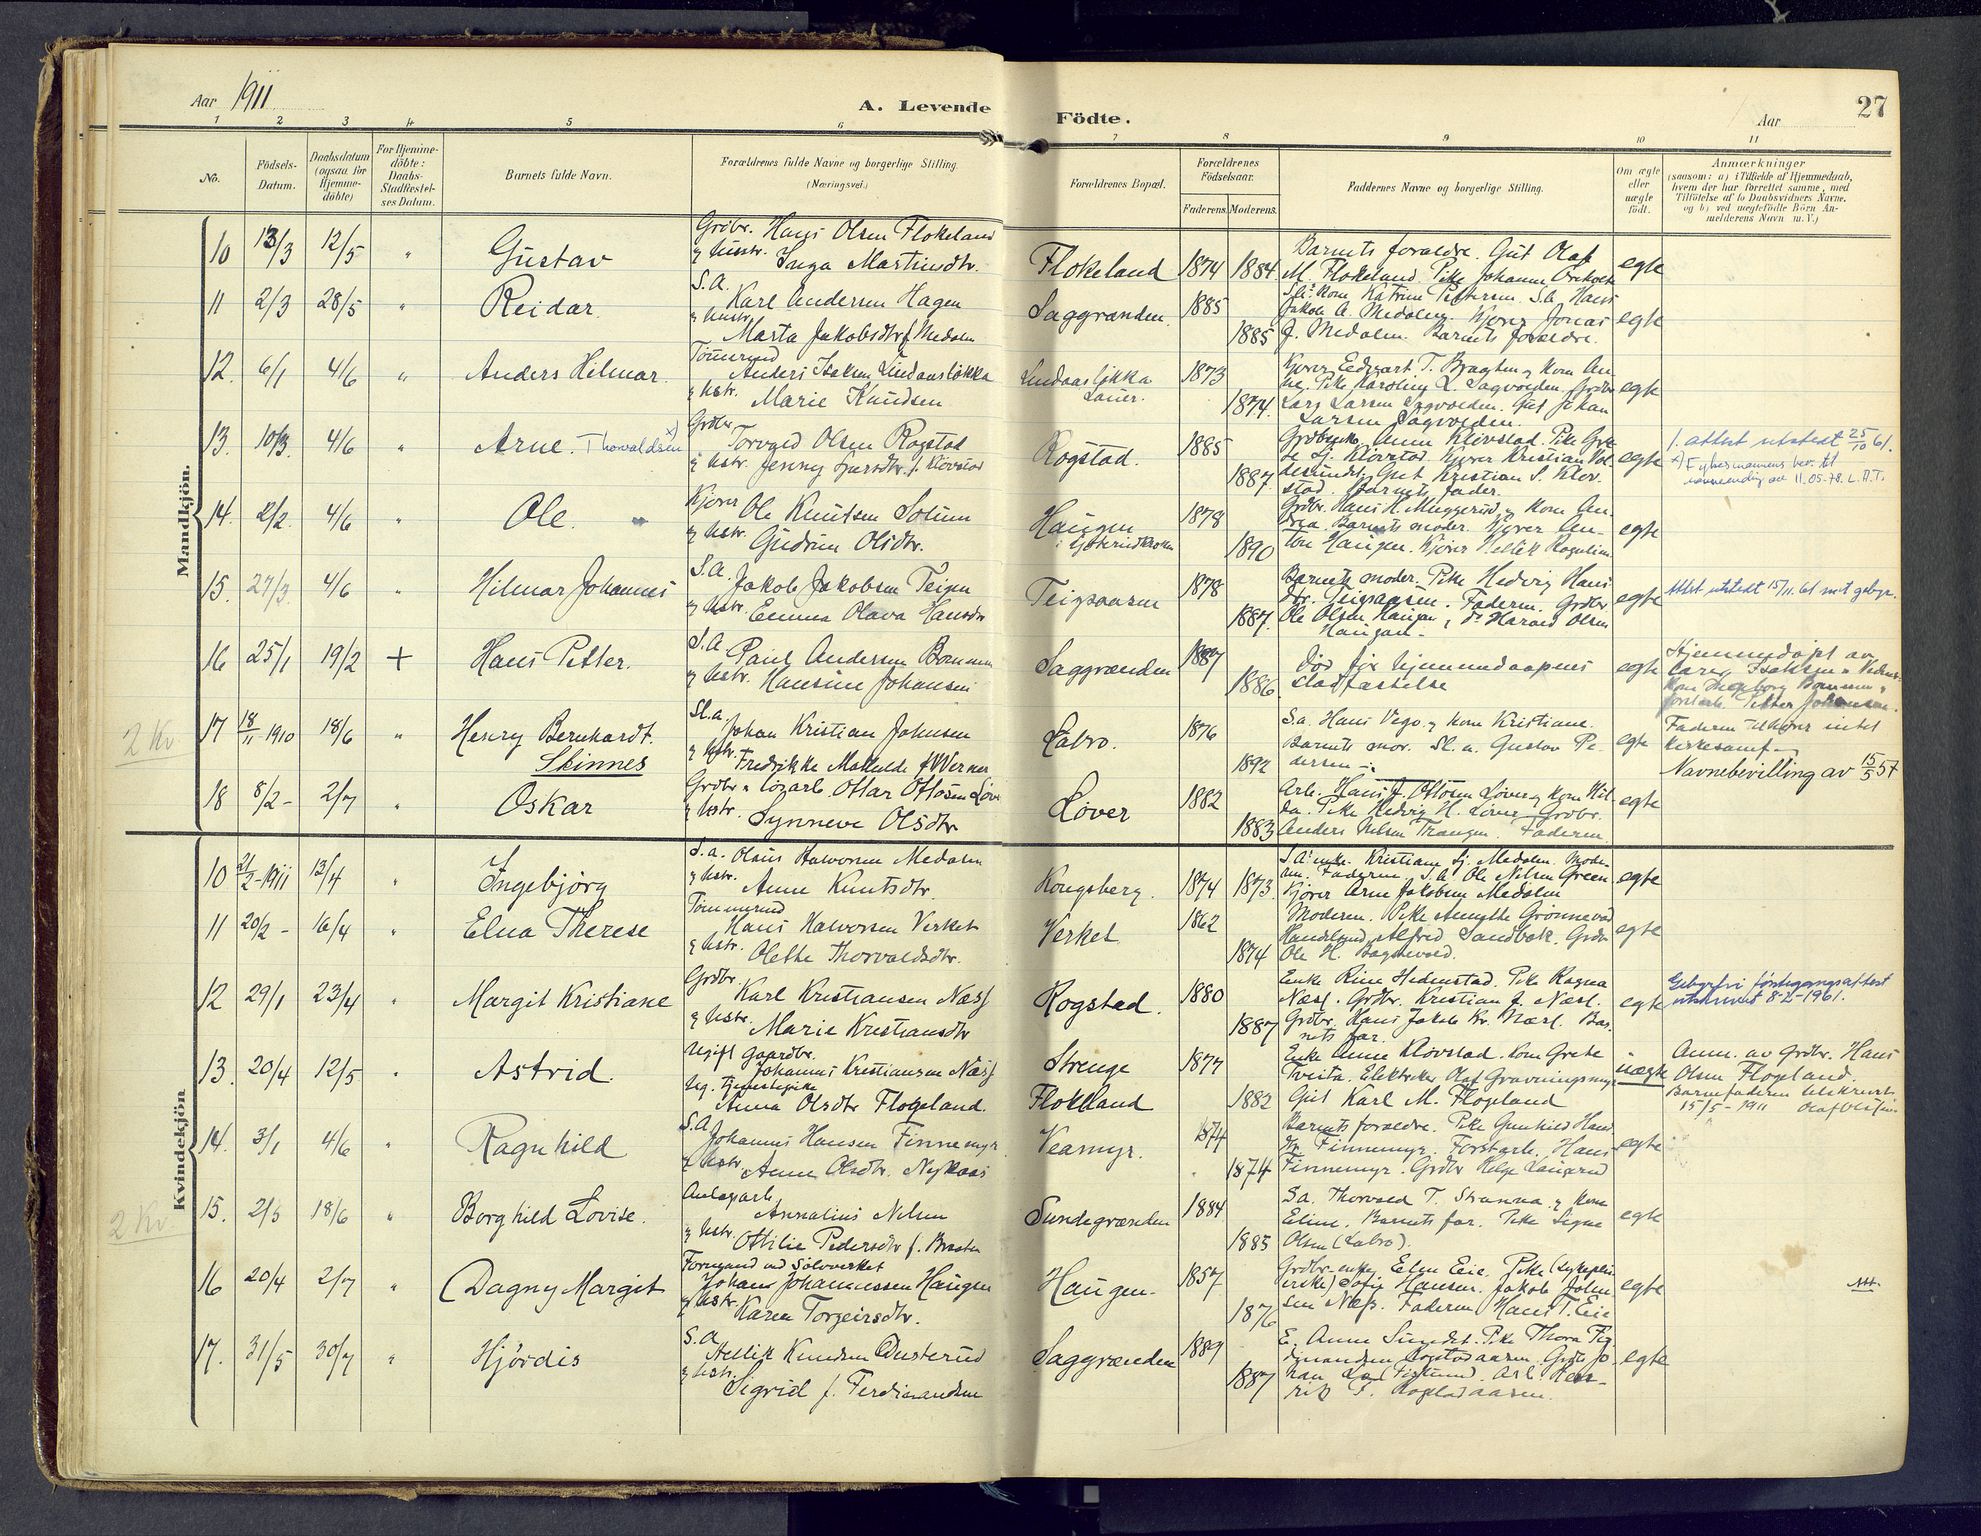 Aar 1911
A. Levende
Födte.
Aar
27
1 2 3 4 5 6 7 8 9 10 11
No.
Födsels-Datum.
Daabsdatum (ogsaa for Hjemme-döbte)
For Hjemme-döbte: Daabs-Stadfæstel-ses Datum.
Barnets fulde Navn.
Forældrenes fulde Navne og borgerlige Stilling. (Næringsvei.)
Forældrenes Bopæl.
Forældrenes Födselsaar.
Faderens. Moderens.
Faddernes Navne og borgerlige Stilling.
Om ægte eller uægte födt.
Anmærkninger
(saasom: a) i Tilfælde af Hjemmedaab, hvem der har forrettet samme, med Tilföielse af to Daabsvidners Navne, og b) ved uægtefödte Börn An-melderens Navn m. V.)
Mandkjön.
10 13/3 12/5 " Gustav
Grdbr. Hans Olsen Flokeland
& hustr. Inga Martinsdtr.
Flokeland 1874 1884
Barnets foraldre. Gut Olaf
M. Flokeland. Pike Johanne
egte
11 2/3 28/5 " Reidar.
S.A.
Karl Andersen Hagen
& hustr.
Marta Jakobsdtr f. Medalen
Saggrænden. 1885
1885
Kone Katrine Pettersen. S.A. Hans
Jakob A. Medalen. Kjører Jonas
J. Medalen. Barnets foreldre.
egte
12. 6/1 4/6 " Anders Hilmar.
Anders Isaksen Lindaasløkka
& hstr. Marie Knudsen
Lindaasløkka
1873
1874.
Kjører Edvart T. Bragten & kone An-
ne. Pike Karoline L. Sagvolden. Grdbr
Lars Larsen Sagvolden. Gut Johan
Larsen Sagvolden.
egte
13. 10/3. 4/6 " Arne. Thowaldsen x)
Grdbr
Torvald Olsen Rogstad
& hstr. Jenny
Rogstad. 1885
1887
Anne Klovstad. Pike Gre-
te Klovstad. Kjører Kristian
Gut Kristian S. Klov-
stad. Barnets fader.
egte
1. attest utstedt 25/10 61.
x) Fylkesmannens bev. til
navneendring av 11.05.78. L.A.T.
14. 2/2. 4/6 " Ole.
Kjører
Ole Knutsen Solum
& hstr. Gudrun Olsdtr.
Haugen
1878
1890
Grdbr. Hans H. Muggerud & kone An-
drea. Barnets moder. Kjører An-
ton Haugen. Kjører Hellik
egte
15. 27/3. 4/6 " Hilmar Johannes
S.A.
Jakob Jakobsen Teigen
& hstr. Emma Olava Hansdtr
Teigsaasen 1878
1887.
Barnets moder. Pike Hedvig Hans
dtr. Teigsaasen. Faderen. Grdbr.
Ole Olsen Haugan, do Harald Olsen
Haugan.
egte
Attst utstedt 15/11. 61 mot gebyr.
16 25/1 19/2 + Hans Petter.
S.A.
Paul Andersen Bommen
& hstr. Hansine Johansen
Saggrænden 1887
1886
Død før hjemmedaapens
stadfæstelse
egte
Hjemmedøpt av
Isaksen
Petter Johansen.
2 Kv
17 18/11-1910 18/6 " Henry Bernhardt.
Skinnes
Sl.a.
Johan Kristian Johnsen
& hstr.
Fredrikke Mathilde f. Werner
Labro. 1876
1892
S.a. Hans Vego & kone Kristiane.
Barnets mor. Sl. a. Gustav Pe-
dersen
egte
Faderen tilhører intet
kirkesamf.
Navnebevilling av 15/5 57
18 8/2 - 2/7 " Oskar
Grdbr & Ottar Ottosen Løver
& hstr. Synneve Olsdtr
Løver 1882
1883
Arb. Hans J. Ottosen Løver & kone Hil-
da. Pike Hedvig H. Løver. Grdbr.
Anders Nilsen Trangen. Faderen
egte
Kvindekjön
10 21/2-1911 13/4 " Ingebjørg
S.a. Olaus Halvorsen Medalen
& hstr.
Anne Knutsdtr.
Kongsberg. 1874 1873
Kristiane Medalen. Mode-
ren. Faderen. S.A. Ole Nilsen Green
Kjører Arne Jakobsen Medalen
egte
11 20/2 - 16/4 " Elna Therese
Hans Halvorsen Verket
& hstr.
Olette Thorvaldsdtr.
Verket 1862
1874
Moderen. Pike
Alfred Sandbæk. Grdbr
Ole H.
egte
12 29/1 23/4 " Margit Kristiane
Grdbr.
Karl Kristiansen Næss
& hstr.
Marie Kristiansdtr
Rogstad. 1880
1887
Enke Rine Hedenstad. Pike Ragna
Næss. Grdbr. Kristian J. Næss.
Grdbr. Hans Jakob Kr. Næss. Bar-
nets far.
egte
Gebyrfri førstegangsattest
utskrevet 8-2-1961.
13. 20/4 12/5 " Astrid.
Ugift gaardbr.
Johannes Kristiansen Næss
Ug. tjenestepike
Anna Olsdtr Flogeland.
Strenge
Flokeland
1877
1882
Enke Anne Klovstad. Kone Grete
Tveita. Elektriker Olaf Gravningsmyr
Gut Karl M. Flogeland
uægte
Anm. av Grdbr. Hans
Olsen Flogeland.
Barnefaderen tilskrevet
15/5-1911 Olaf Olsen
14. 3/1 4/6 " Ragnhild
S.A
Johannes Hansen Finnemyr
& hstr.
Anne Olsdtr. Nykaas
Veamyr. 1874
1874
Barnets foreldre. Pike Gunhild Hans
dtr Finnemyr. Forstarb. Hans
Finnemyr. Grdbr Helge Laugerud
egte
2 Kv.
15. 2/5 18/6 " Borghild Lovise.
Anlægsarb.
Annalius Nilsen
& hstr.
Ottilie Pedersdtr f. Braaten
Sundegrænden 1884
1885
S.a. Thorvald T. Stranna & kone
Eline. Barnets far. Pike Signe
Olsen (Labro).
egte
16 20/4 2/7 " Dagny Margit
Formand ved Sølvverket
Johan Johannessen Haugen
& hstr.
Karen Torgeirsdtr.
Haugen. 1857
1876
Grdbr.enke Elen Eie. Pike (sykeplei-
erske) Sofie Hansen. Jakob John
sen Næss. Faderen Hans T. Eie
egte
17. 31/5 30/7 " Hjørdis
S.A
Hellik Knudsen Dusterud
& hstr.
Sigrid f. Ferdinandsen
Saggrænden 1889
1887
E. Anne Sundet. Pike Thora Fer
dinandsen Rogstadaasen. Grdbr Jo-
han Arb. Hen-
rik F. Rogstadaasen.
egte